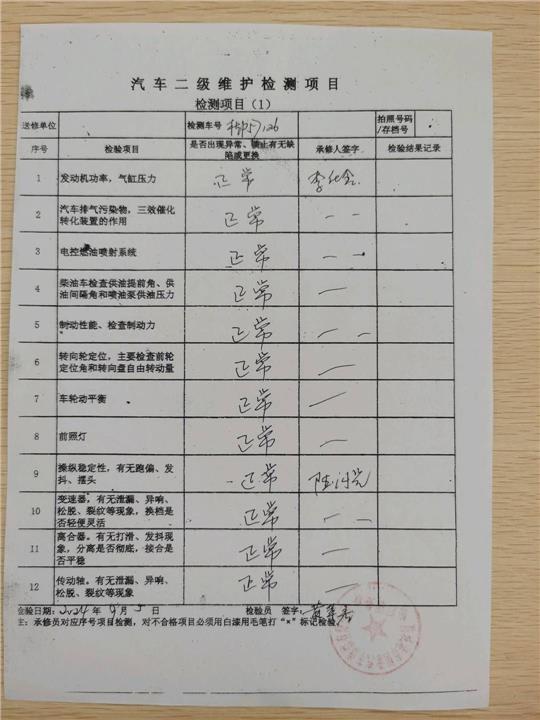 汽车二级维护检测项目
检测项目（1）
送修单位 检测车号 拍照号码/存档号
序号 检验项目 是否出现异常、锁止有无缺陷或更换 承修人签字 检验结果记录
1 发动机功率，气缸压力 正常
2 汽车排气污染物，三效催化转化装置的作用 正常
3 电控燃油喷射系统 正常
4 柴油车检查供油提前角、供油间隔角和喷油泵供油压力 正常
5 制动性能、检查制动力 正常
6 转向轮定位，主要检查前轮定位角和转向盘自由转动量 正常
7 车轮动平衡 正常
8 前照灯 正常
9 操纵稳定性，有无跑偏、发抖、摆头 正常
10 变速器，有无泄漏、异响、松脱、裂纹等现象，换档是否轻便灵活 正常
11 离合器。有无打滑、发抖现象，分离是否彻底，接合是否平稳 正常
12 传动轴。有无泄漏、异响、松脱、裂纹等现象 正常
金验日期：2024年9月5日 检验员 签字：
主：承修员对应序号项目检测，对不合格项目必须用白漆用毛笔打“×”标记检验。